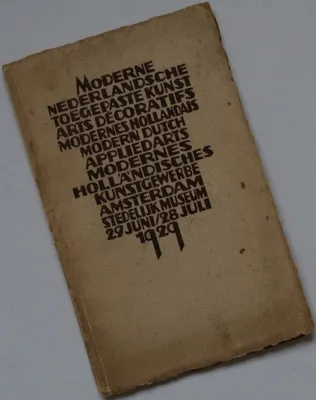 MODERNE
NEDERLANDSCHE
TOEGEPASTE KUNST
ARTS DÉCORATIFS
MODERNES HOLLANDAIS
MODERN DUTCH
APPLIED ARTS
MODERNES
HOLLÄNDISCHES
KUNSTGEWERBE
AMSTERDAM
STEDELIJK MUSEUM
29 JUNI/28 JULI
1929